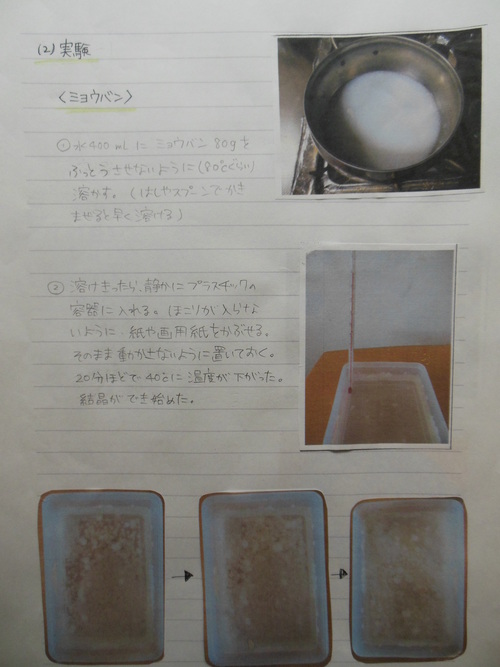 (2) 実験
〈ミョウバン〉
①水400mlに ミョウバン 80gを
ふっとうさせないように(80℃ぐらい)
溶かす。(はしやスプーンでかき
まぜると早く溶ける)
②溶けきったら、静かにプラスチックの
容器に入れる。ほこりが入らな
いように、紙や画用紙をかぶせる。
そのまま動かさないように置いておく。
20分ほどで40℃に温度が下がった。
結晶ができ始めた。